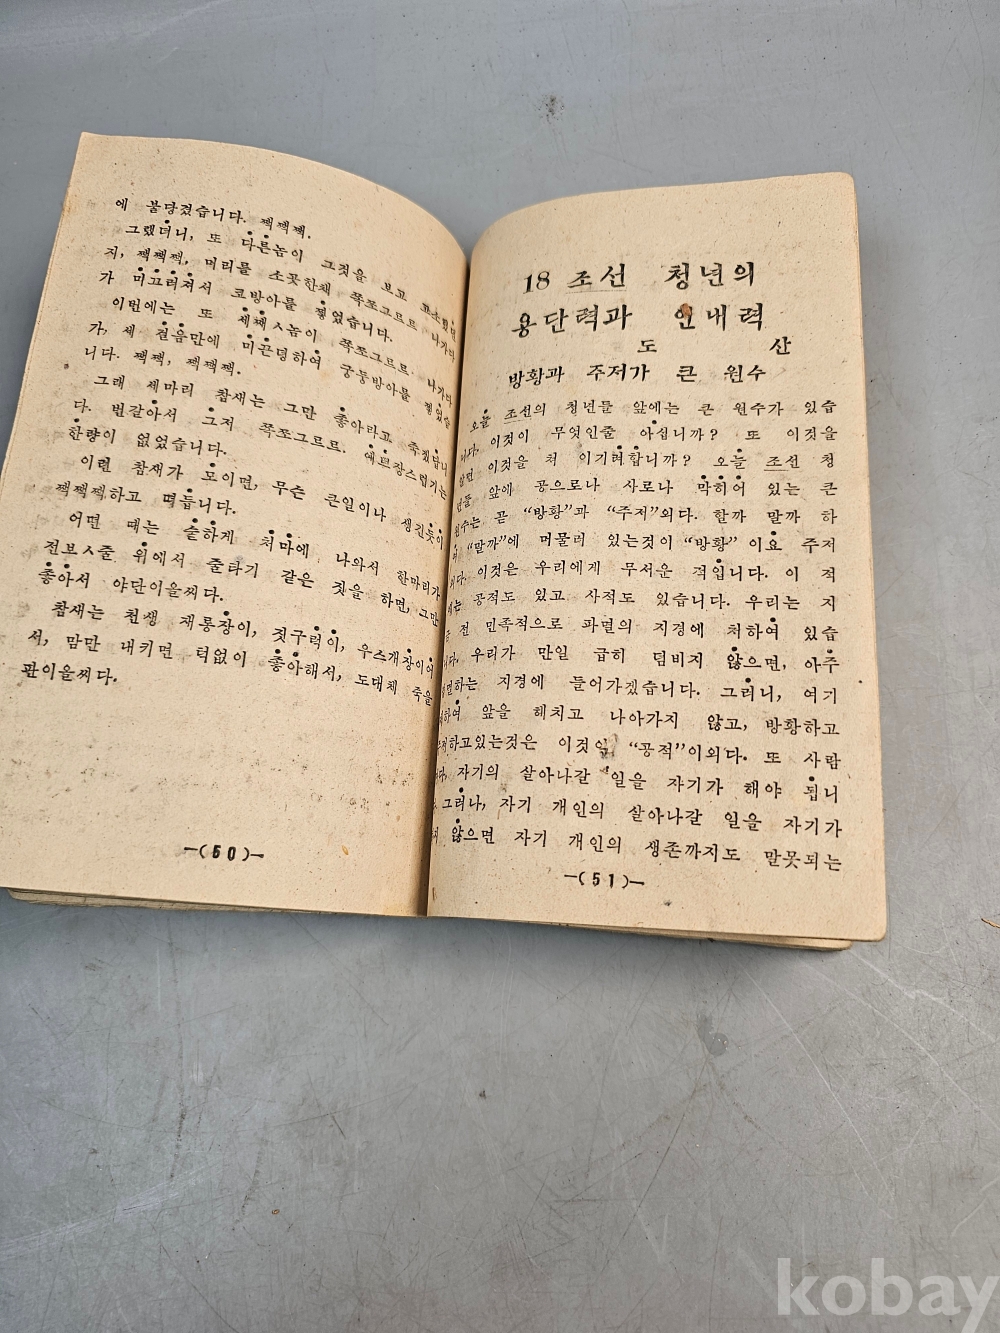 에 불당겼습니다. 짹짹짹.
그랬더니, 또 다른놈이 그것을 보고
지, 짹짹짹, 머리를 소곳한채 쪽쪼그르르 나가다
가 미끄러져서 로방아를 찧었습니다.
이번에는 또 세째ㅅ놈이 쪽쪼그르르 나가다
가, 세 걸음만에 미끈덩하여 궁둥방아를 찧었습
니다. 짹짹, 짹짹짹.
그래 세마리 참새는 그만 좋아라고 죽겠답니
다. 번갈아서 그저 쪽쪼그르르.
한량이 없었습니다.
이런 참새가 모이면, 무슨 큰일이나 생긴듯이
짹짹짹하고 떠듭니다.
어떤 때는 숱하게 처마에 나와서 한마리가
전보ㅅ줄 위에서 줄타기 같은 짓을 하면, 그만
좋아서 야단이올씨다.
참새는 천생 재롱장이, 짓구러이, 우스개장이어
서, 맘만 내키면 터없이 좋아해서, 도대체 죽을
판이올씨다.
—(50)—
18 조선 청년의
용단력과 인내력
도 산
방황과 주저가 큰 원수
오늘 조선의 청년들 앞에는 큰 원수가 있습
니다. 이것이 무엇인줄 아십니까? 또 이것을
알면 이것을 쳐 이기려합니까? 오늘 조선 청
년들 앞에 공으로나 사로나 막히어 있는 큰
원수는 곧 “방황”과 “주저”외다. 할까 말까 하
여 “말까”에 머물러 있는것이 “방황” 이요 주저
이다. 이것은 우리에게 무서운 적입니다. 이 적
에는 공적도 있고 사적도 있습니다. 우리는 지
금 전 민족적으로 파멸의 지경에 처하여 있습
니다. 우리가 만일 급히 덤비지 않으면, 아주
멸하는 지경에 들어가겠습니다. 그러니, 여기
하여 앞을 헤치고 나아가지 않고, 방황하고
주저하고있는것은 이것이 “공적”이외다. 또 사람
자기의 살아나갈 일을 자기가 해야 됩니
다. 그러나, 자기 개인의 살아나갈 일을 자기가
않으면 자기 개인의 생존까지도 말못되는
—(51)—
kobay